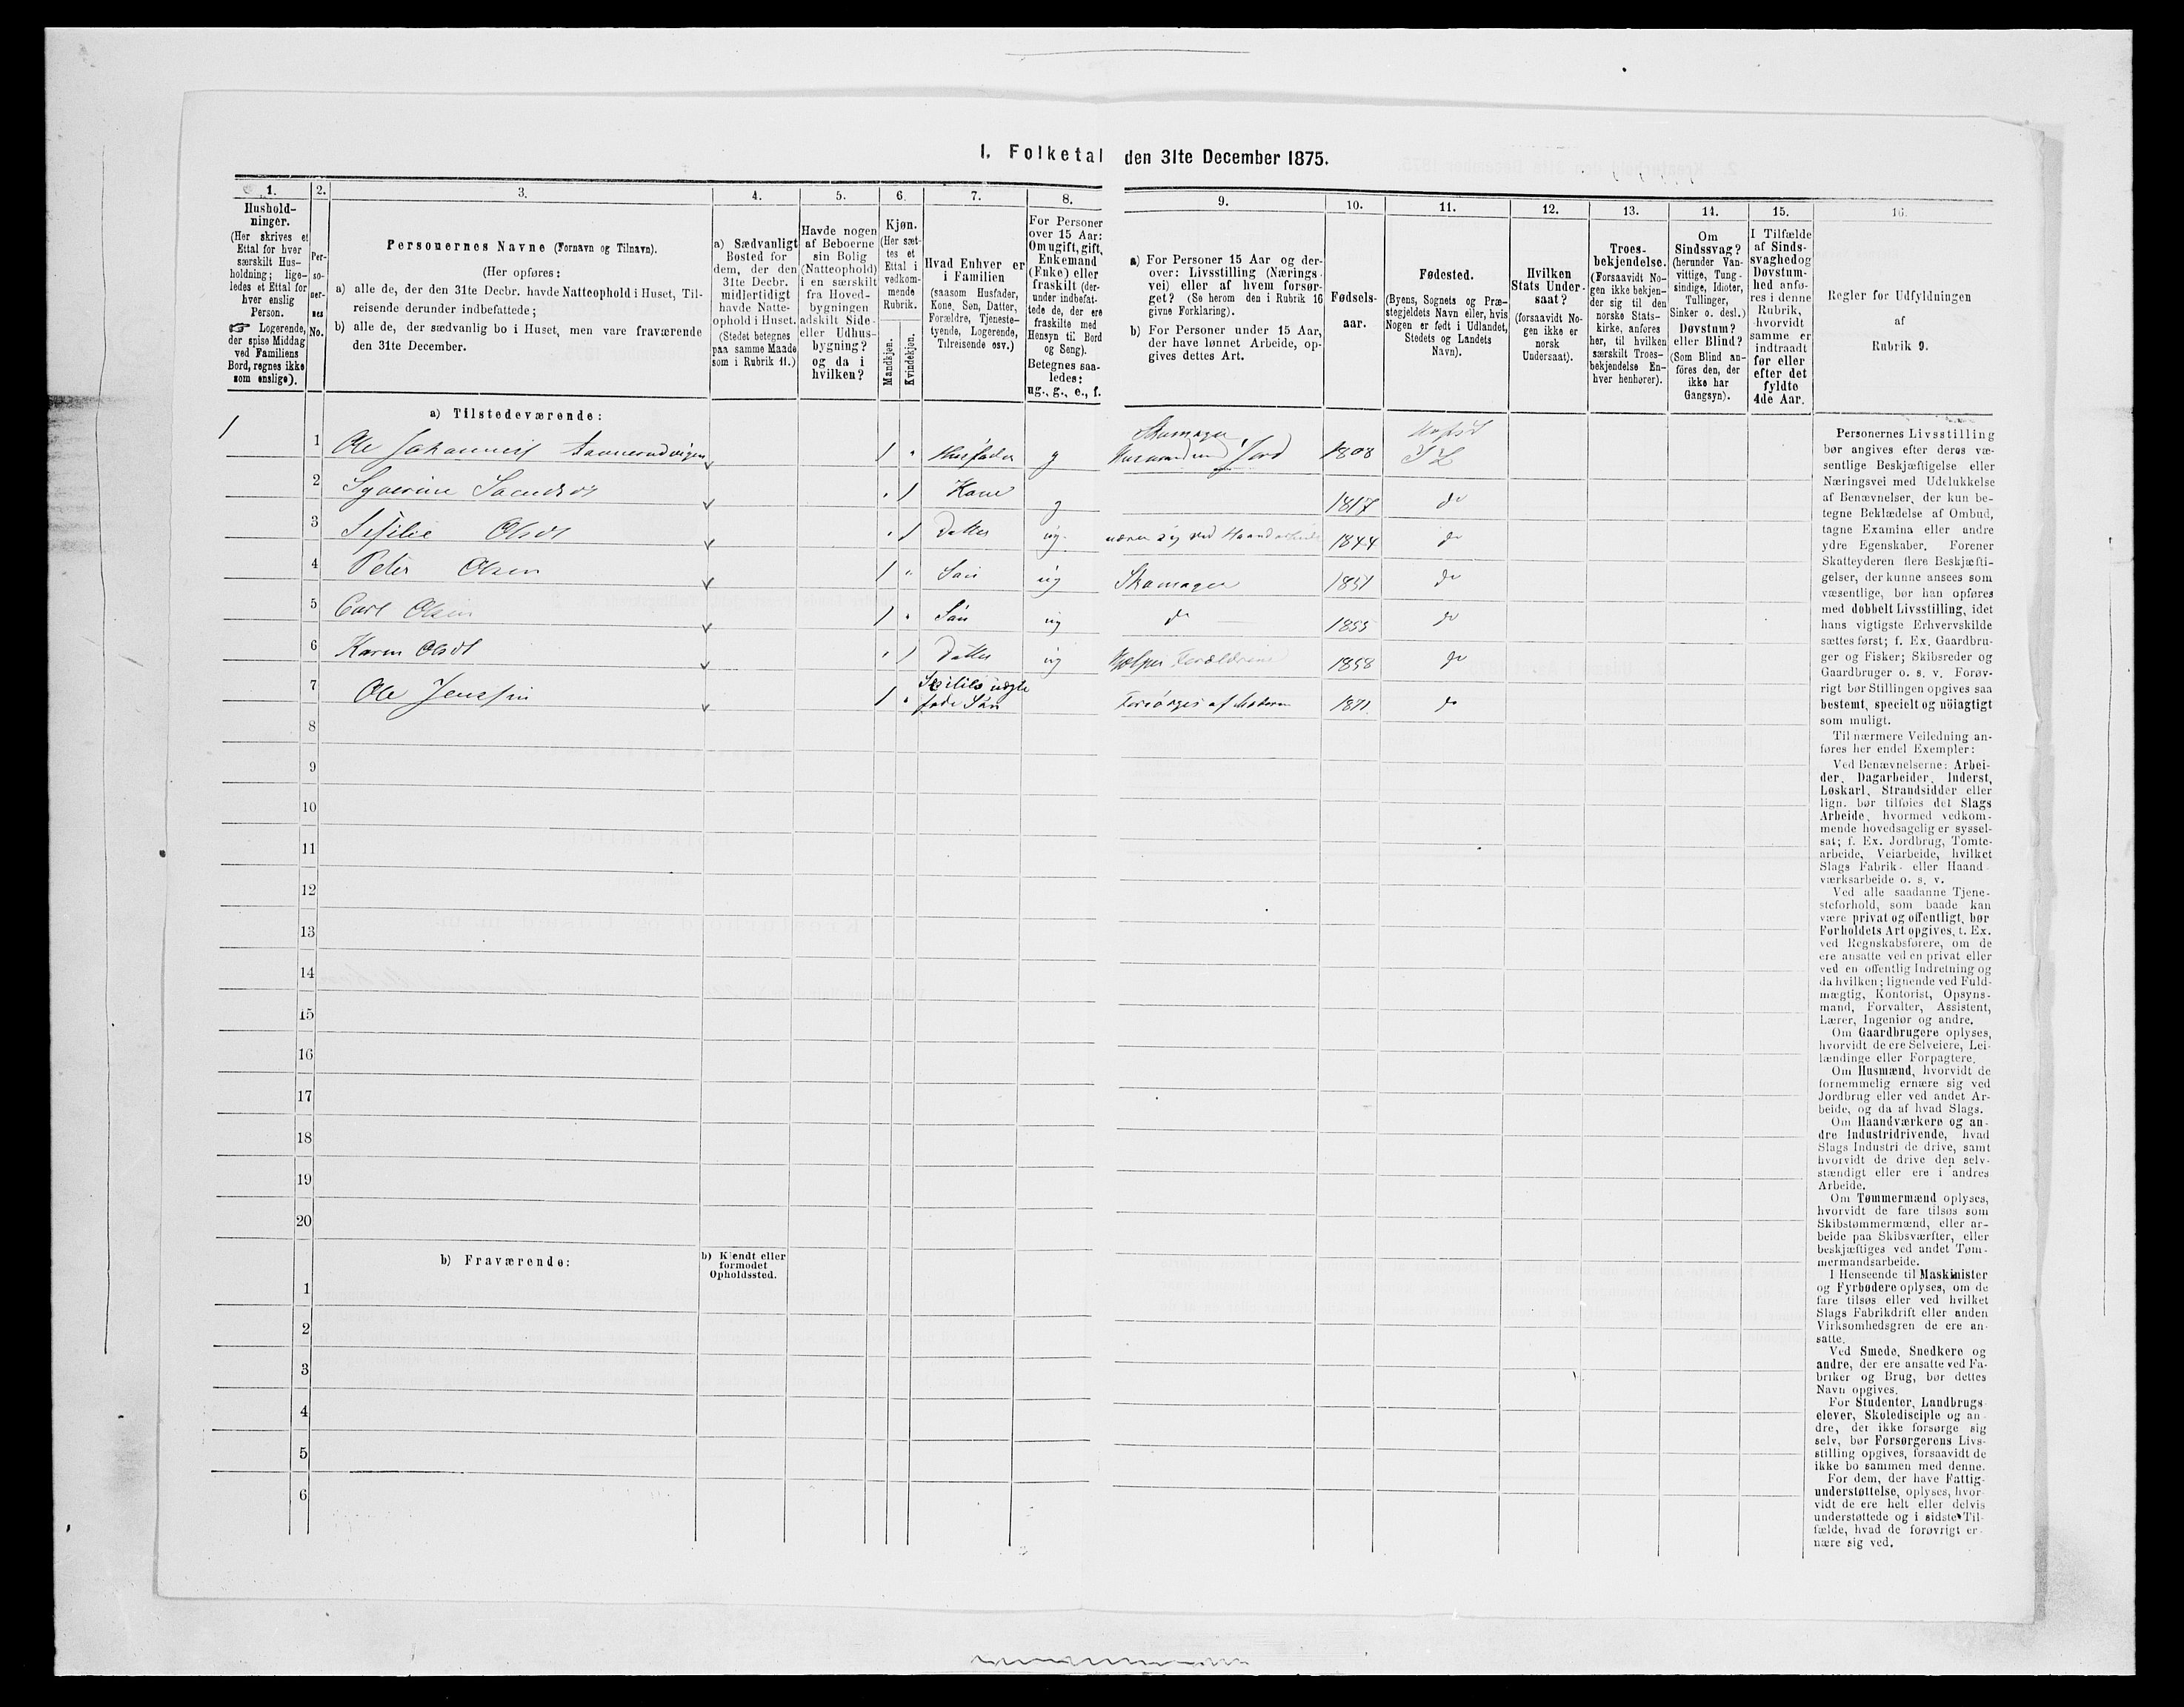 I. Folketal den 31te December 1875.
1.
Hushold-
ninger.
(Her skrives et
Ettal for hver
særskilt Hus-
holdning; lige-
ledes et Ettal for
hver enslig
Person.
☞ Logerende,
der spise Middag
ved Familiens
Bord, regnes ikke
som enslige).
2.
Per-
so-
ner-
nes
No.
3.
Personernes Navne (Fornavn og Tilnavn).
(Her opføres:
a) alle de, der den 31te Decbr. havde Natteophold i Huset, Til-
reisende derunder indbefattede;
b) alle de, der sædvanlig bo i Huset, men vare fraværende
den 31te December.
4.
a) Sædvanligt
Bosted for
dem, der den
31te Decbr.
midlertidigt
havde Natte-
ophold i Huset.
(Stedet betegnes
paa samme Maade
som i Rubrik 11.)
5.
Havde nogen
af Beboerne
sin Bolig
(Natteophold)
i en særskilt
fra Hoved-
bygningen
adskilt Side-
eller Udhus-
bygning?
og da i
hvilken?
6.
Kjøn.
(Her sæt-
tes et
Ettal i
vedkom-
mende
Rubrik.
Mandkjøn.
Kvindekjøn.
7.
Hvad Enhver er
i Familien
(saasom Husfader,
Kone, Søn, Datter,
Forældre, Tjeneste-
tyende, Logerende,
Tilreisende osv.)
8.
For Personer
over 15 Aar:
Om ugift, gift,
Enkemand
(Enke) eller
fraskilt (der-
under indbefat-
tede de, der ere
fraskilte med
Hensyn til Bord
og Seng).
Betegnes saa-
ledes:
ug., g., e., f.
9.
a) For Personer 15 Aar og der-
over: Livsstilling (Nærings-
vei) eller af hvem forsør-
get? (Se herom den i Rubrik 16
givne Forklaring).
b) For Personer under 15 Aar,
der have lønnet Arbeide, op-
gives dettes Art.
10.
Fødsels-
aar.
11.
Fødested.
(Byens, Sognets og Præ-
stegjeldets Navn eller, hvis
Nogen er født i Udlandet,
Stedets og Landets
Navn).
12.
Hvilken
Stats Under-
saat?
(forsaavidt No-
gen ikke er
norsk
Undersaat).
13.
Troes-
bekjendelse.
(Forsaavidt No-
gen ikke bekjen-
der sig til den
norske Stats-
kirke, anføres
her, til hvilken
særskilt Troes-
bekjendelse En-
hver henhører).
14.
Om
Sindssvag?
(herunder Van-
vittige, Tung-
sindige, Idioter,
Tullinger,
Sinker o. desl.)
Døvstum?
eller Blind?
(Som Blind an-
føres den, der
ikke har
Gangsyn).
15.
I Tilfælde
af Sinds-
svaghed og
Døvstum-
hed anfø-
res i denne
Rubrik,
hvorvidt
samme er
indtraadt
før eller
efter det
fyldte
4de Aar.
16.
Regler for Udfyldningen
af
Rubrik 9.
a) Tilstedeværende:
1
1 Ole Johannes 1 Husfader g Skomager Husmand Jord 1808
2 Syverine 1 Kone g 1817 do
3 Olsdt 1 Datter ug. 1844 do
4 Peter Olsen 1 Søn ug Skomager 1851 do
5 Carl Olsen 1 Søn ug do 1855 do
6 Karen Olsdt 1 Datter ug Hjelper Forældrene 1858 do
7 Ole Jenssen 1 fødte Søn Forsørges af Moderen 1871 do
8
9
10
11
12
13
14
15
16
17
18
19
20
b) Fraværende:
b) Kjendt eller
formodet
Opholdssted.
1
2
3
4
5
6
Personernes Livsstilling
bør angives efter deres væ-
sentlige Beskjæftigelse eller
Næringsvei med Udelukkelse
af Benævnelser, der kun be-
tegne Beklædelse af Ombud,
tagne Examina eller andre
ydre Egenskaber. Forener
Skatteyderen flere Beskjæfti-
gelser, der kunne ansees som
væsentlige, bør han opføres
med dobbelt Livsstilling, idet
hans vigtigste Erhvervskilde
sættes først; f. Ex. Gaardbru-
ger og Fisker; Skibsreder og
Gaardbruger o. s. v. Forøv-
rigt bør Stillingen opgives saa
bestemt, specielt og nöiagtigt
som muligt.
Til nærmere Veiledning an-
føres her endel Exempler:
Ved Benævnelserne: Arbei-
der, Dagarbeider, Inderst,
Løskarl, Strandsidder eller
lign. bør tilføies det Slags
Arbeide, hvormed vedkom-
mende hovedsagelig er syssel-
sat; f. Ex. Jordbrug, Tomte-
arbeide, Veiarbeide, hvilket
Slags Fabrik- eller Haand-
værksarbeide o. s. v.
Ved alle saadanne Tjene-
steforhold, som baade kan
være privat og offentligt, bør
Forholdets Art opgives, t. Ex.
ved Regnskabsførere, om de
ere ansatte ved en privat eller
ved en offentlig Indretning og
da hvilken; lignende ved Fuld-
mægtig, Kontorist, Opsyns-
mand, Forvalter, Assistent,
Lærer, Ingeniør og andre.
Om Gaardbrugere oplyses,
hvorvidt de ere Selveiere, Lei-
lændinge eller Forpagtere.
Om Husmænd, hvorvidt de
fornemmelig ernære sig ved
Jordbrug eller ved andet Ar-
beide, og da af hvad Slags.
Om Haandværkere og an-
dre Industridrivende, hvad
Slags Industri de drive, samt
hvorvidt de drive den selv-
stændigt eller ere i andres
Arbeide.
Om Tømmermænd oplyses,
hvorvidt de fare tilsøs som
Skibstømmermænd, eller ar-
beide paa Skibsværfter, eller
beskjæftiges ved andet Tøm-
mermandsarbeide.
I Henseende til Maskinister
og Fyrbødere oplyses, om de
fare tilsøs eller ved hvilket
Slags Fabrikdrift eller anden
Virksomhedsgren de ere an-
satte.
Ved Smede, Snedkere og
andre, der ere ansatte ved Fa-
briker og Brug, bør dettes
Navn opgives.
For Studenter, Landbrugs-
elever, Skoledisciple og an-
dre, der ikke forsørge sig
selv, bør Forsørgerens Livs-
stilling opgives, forsaavidt de
ikke bo sammen med denne.
For dem, der have Fattig-
understøttelse, oplyses, hvor-
vidt de ere helt eller delvis
understøttede og i sidste Til-
fælde, hvad de forøvrigt er-
nære sig ved.